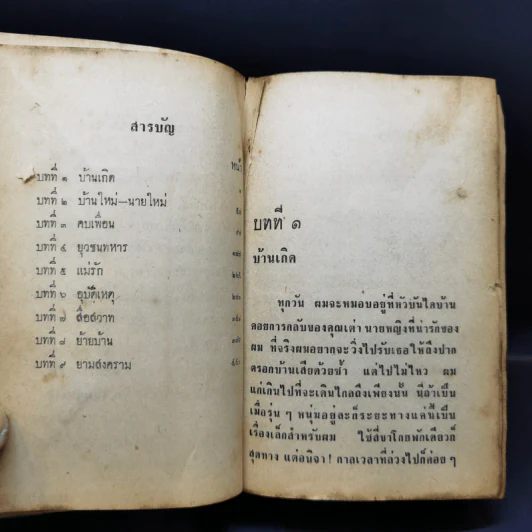 สารบัญ
บทที่ ๑ บ้านเกิด
บทที่ ๒ บ้านใหม่—นายใหม่
บทที่ ๓ คบเพื่อน
บทที่ ๔ ยุวชนทหาร
บทที่ ๕ แม่รัก
บทที่ ๖ อุบัติเหตุ
บทที่ ๗ สื่อสวาท
บทที่ ๘ ย้ายบ้าน
บทที่ ๙ ยามสงคราม
บทที่ ๑
บ้านเกิด
ทุกวัน ผมจะหมอบอยู่ที่หัวบันไดบ้าน
คอยการกลับของคุณเต่า นายหญิงที่น่ารักของ
ผม ที่จริงผมอยากจะวิ่งไปรับเธอให้ถึงปาก
ตรอกบ้านเสียด้วยซ้ำ แต่ไปไม่ไหว ผม
แก่เกินไปที่จะเดินไกลถึงเพียงนั้น นี่ถ้าเป็น
เมื่อรุ่น ๆ หนุ่มอยู่ละก็ระยะทางแค่นี้เป็น
เรื่องเล็กสำหรับผม ใช้สี่ขาโกยพักเดียวก็
สุดทาง แต่อนิจา! กาลเวลาที่ล่วงไปก็ค่อย ๆ